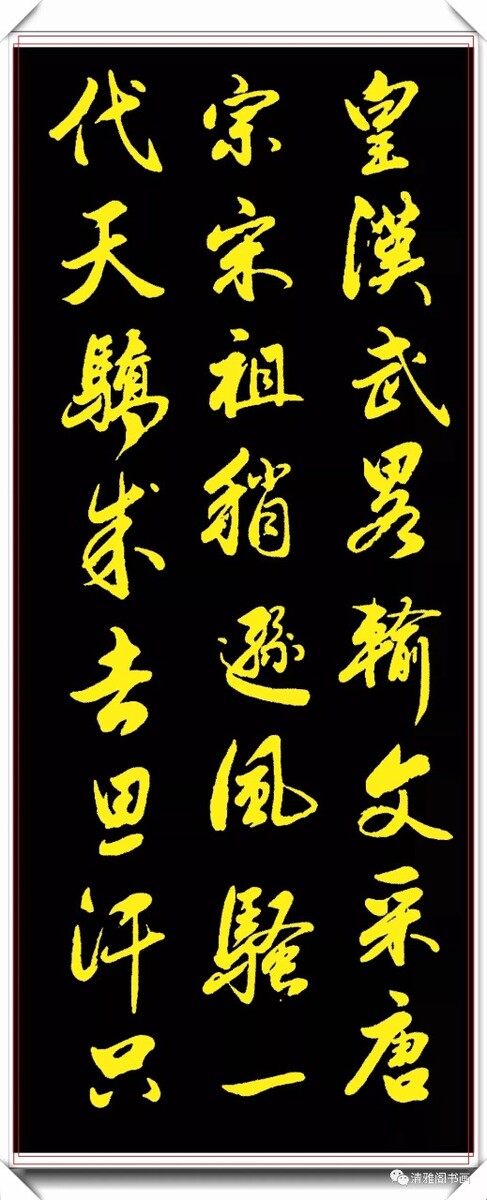 皇漢武畧輸文采唐
宗宋祖稍遜風騷一
代天驕成吉思汗只
清雅阁书画